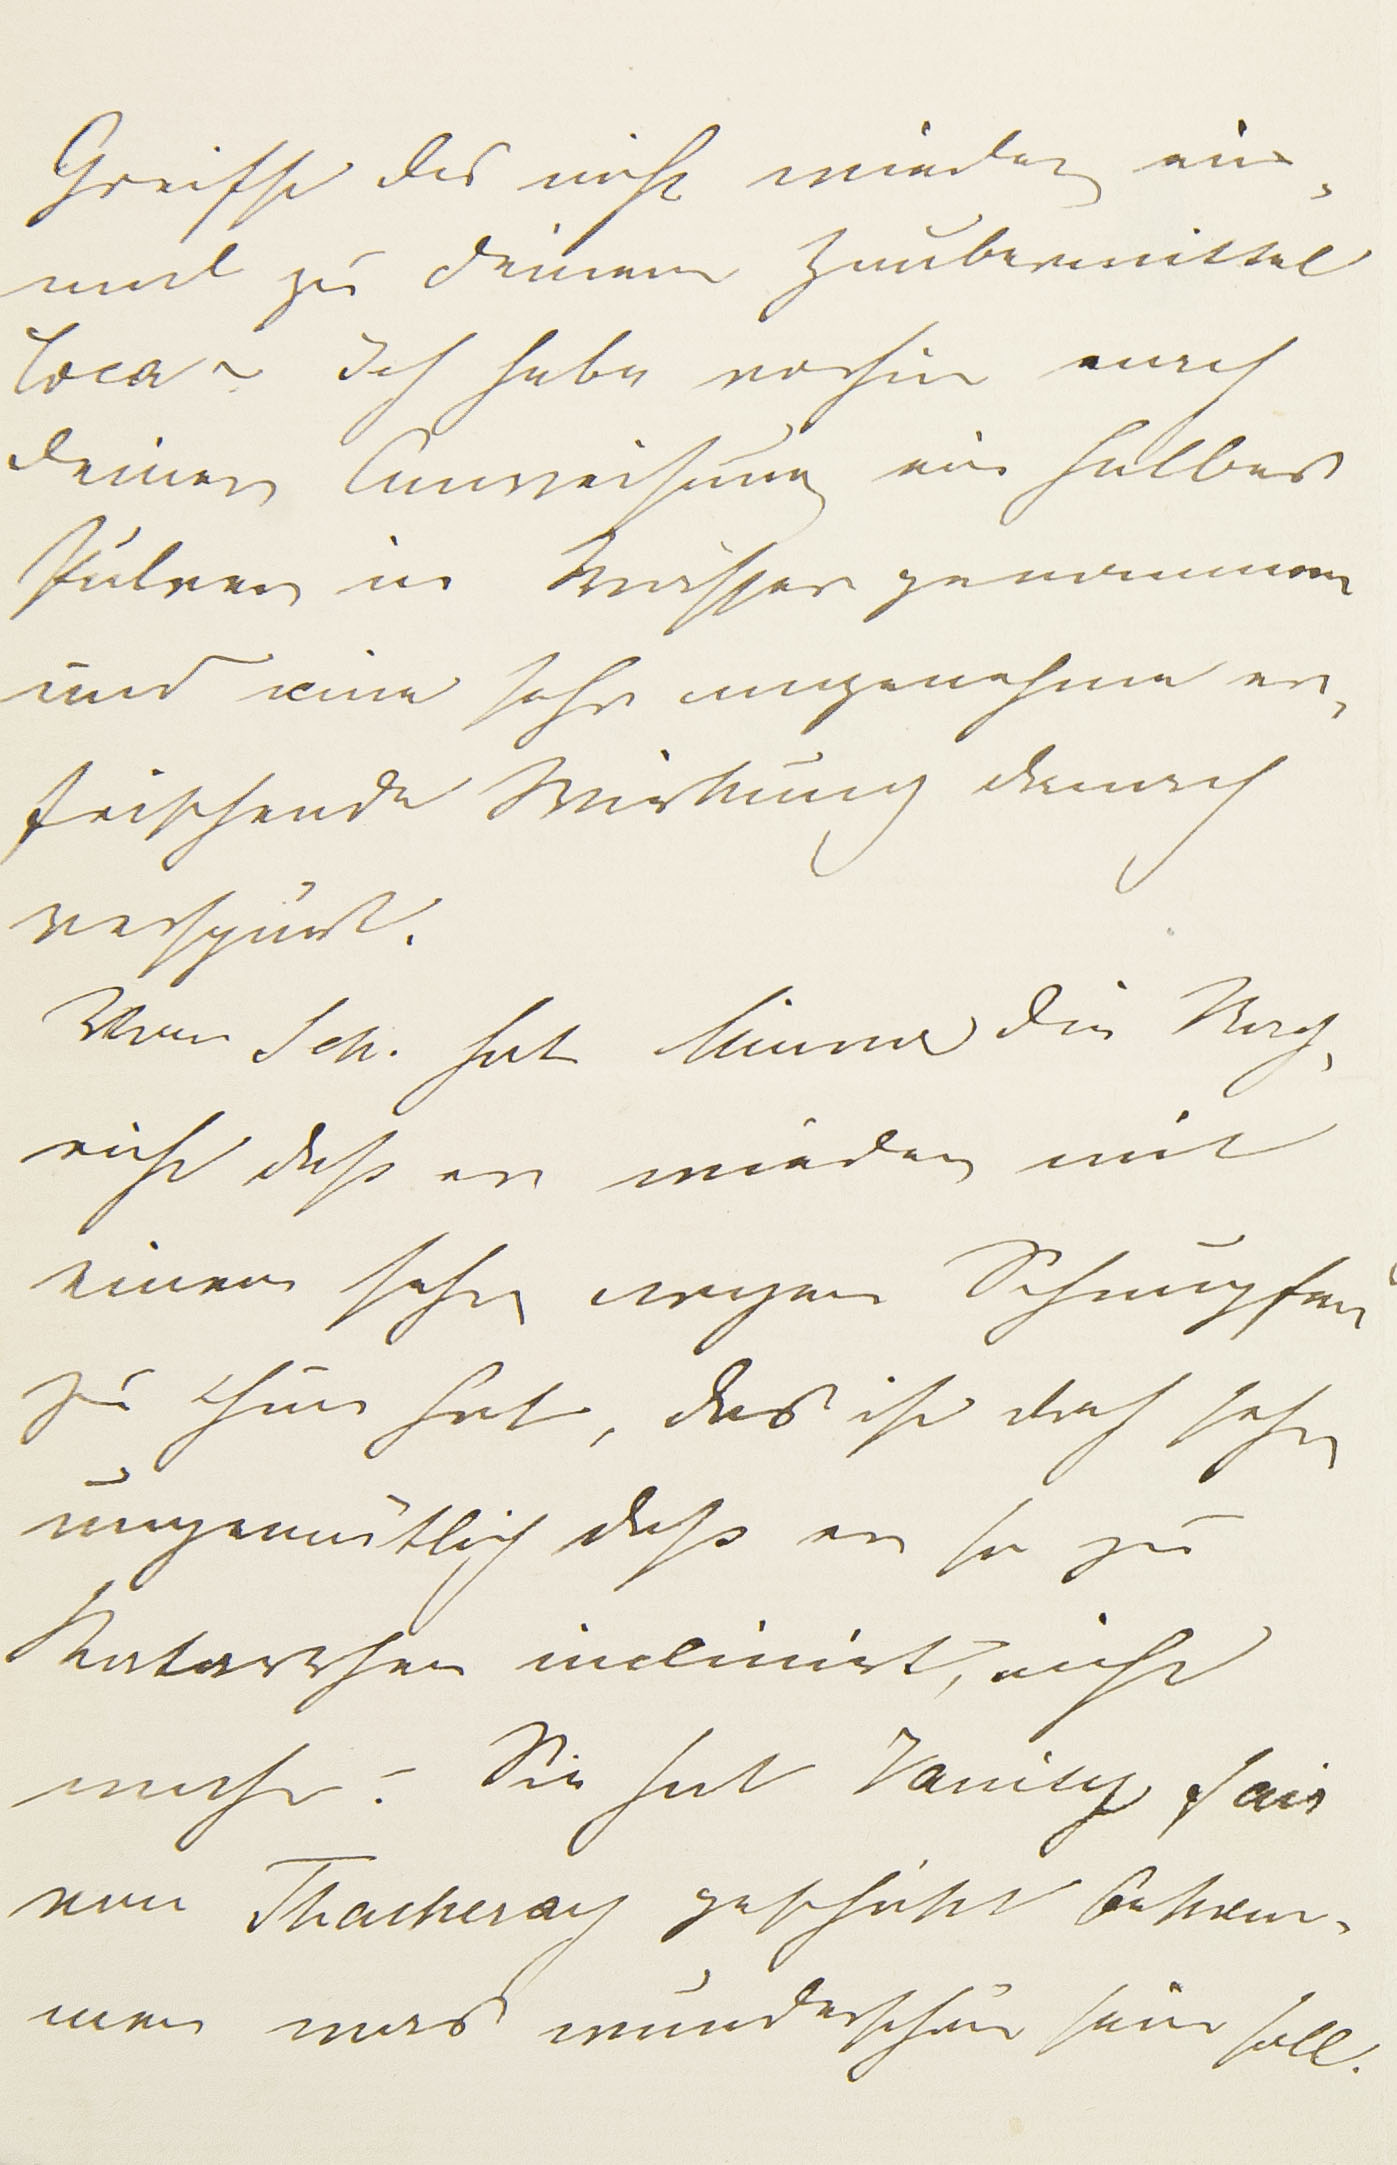 Greifst du nicht wieder ein-
mal zu deinem Zaubermittel
Coca – Ich habe vorhin nach
deiner Anweisung ein halbes
Pulver in Wasser genommen
und eine sehr angenehme er-
frischende Wirkung danach
verspürt.
Von Sch. hat Minna die Nach-
richt daß er wieder mit
einem sehr argen Schnupfen
zu thun hat, das ist doch sehr
ungemütlich daß er so zu
Katarrhen inclinirt, nicht
mehr? Sie hat Vanity fair
von Thackeray geschickt bekom-
men was wunderschön sein soll.